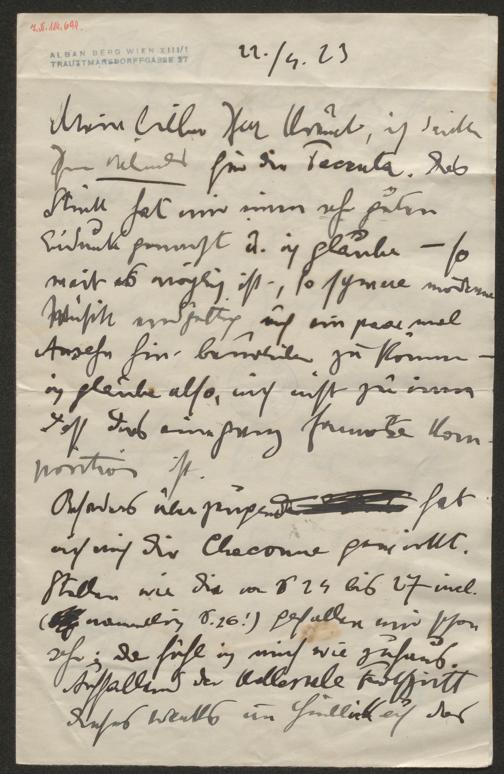 Z.B. 112.694.
ALBAN BERG WIEN XIII/1
TRAUTTMANSDORFFGASSE 27
22./4. 23
Mein lieber Herr Krenek, ich danke
Ihnen vielmals für die Toccata. Das
Stück hat mir einen sehr guten
Eindruck gemacht u. ich glaube – so
weit es möglich ist –, so schwere moderne
Musik auf ein paar mal
Ansehn hin beurteilen zu können –
ich glaube also, mich nicht zu irren
daß das eine ganz famose Kom-
position ist.
Besonders überzeugend hat
auf mich die Chaconne gewirkt.
Stellen wie die von S 24 bis 27 incl.
(namentlich S. 26!) gefallen mir schon
sehr; da fühl ich mich wie zuhaus.
Auffallend der kolossale Fortschritt
dieses Werks im Hinblick auf das